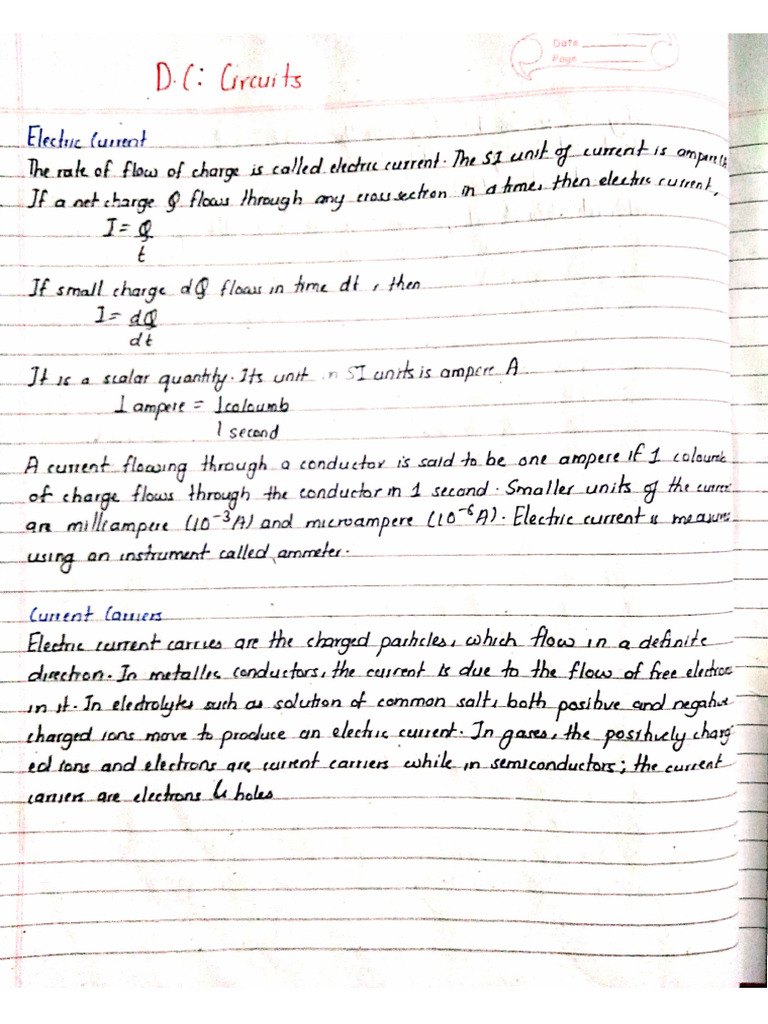 Date
Page
D.C: Circuits
Electric Current
The rate of flow of charge is called electric current. The SI unit of current is ampere
If a net charge Q flows through any cross section in a time, then electric current,
I = Q
t
If small charge dQ flows in time dt, then
I = dQ
dt
It is a scalar quantity. Its unit in SI units is ampere A
1 ampere = 1 coloumb
1 second
A current flowing through a conductor is said to be one ampere if 1 coloumb
of charge flows through the conductor in 1 second. Smaller units of the current
are milliampere (10⁻³A) and microampere (10⁻⁶A). Electric current is measure
using an instrument called, ammeter.
Current Carriers
Electric current carries are the charged particles, which flow in a definite
direction. In metallic conductors, the current is due to the flow of free electrons
in it. In electrolytes such as solution of common salt, both positive and negative
charged ions move to produce an electric current. In gases, the positively charg
ed ions and electrons are current carriers while in semiconductors; the current
carriers are electrons & holes